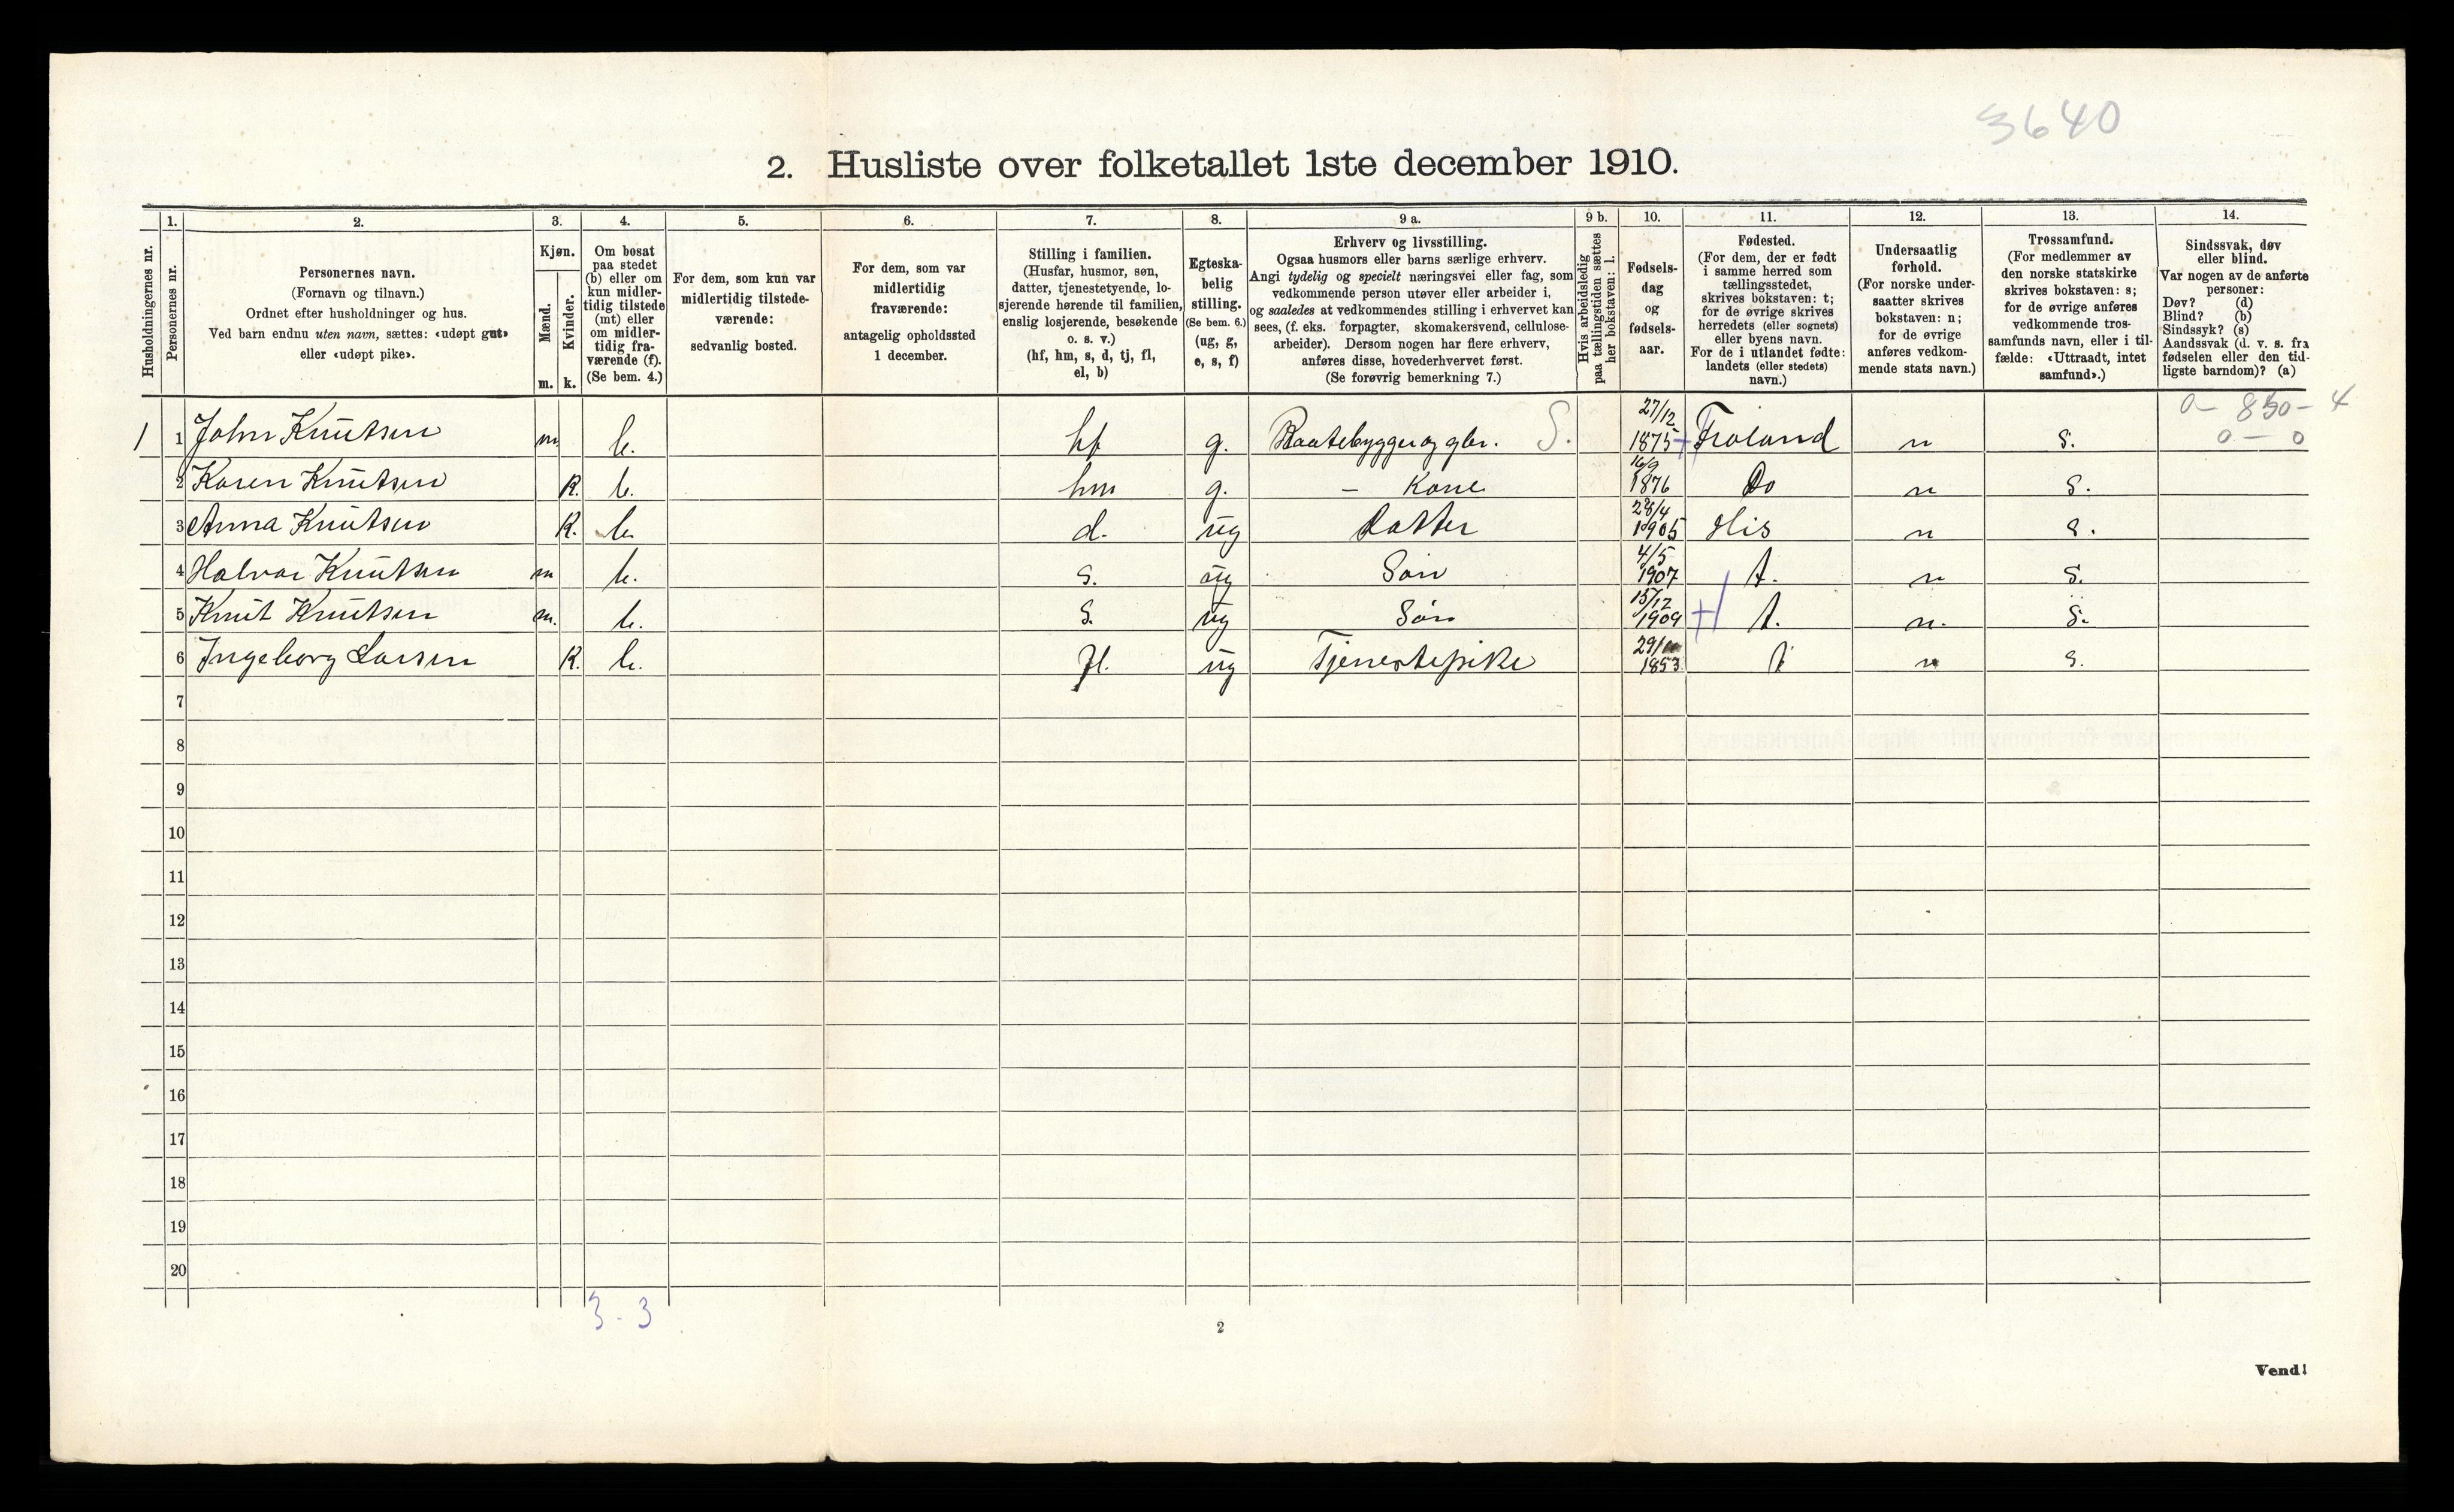 3640
2. Husliste over folketallet 1ste december 1910.
1. 2. 3. 4. 5. 6. 7. 8. 9 a. 9 b. 10. 11. 12. 13. 14.
Husholdningernes nr.
Personernes nr.
Personernes navn.
(Fornavn og tilnavn.)
Ordnet efter husholdninger og hus.
Ved barn endnu uten navn, sættes: «udøpt gut»
eller «udøpt pike».
Kjøn.
Mænd.
Kvinder.
m. k.
Om bosat
paa stedet
(b) eller om
kun midler-
tidig tilstede
(mt) eller
om midler-
tidig fra-
værende (f).
(Se bem. 4.)
For dem, som kun var
midlertidig tilstede-
værende:
sedvanlig bosted.
For dem, som var
midlertidig
fraværende:
antagelig opholdssted
1 december.
Stilling i familien.
(Husfar, husmor, søn,
datter, tjenestetyende, lo-
sjerende hørende til familien,
enslig losjerende, besøkende
o. s. v.)
(hf, hm, s, d, tj, fl,
el, b)
Egteska-
belig
stilling.
(Se bem. 6.)
(ug, g,
e, s, f)
Erhverv og livsstilling.
Ogsaa husmors eller barns særlige erhverv.
Angi tydelig og specielt næringsvei eller fag, som
vedkommende person utøver eller arbeider i,
og saaledes at vedkommendes stilling i erhvervet kan
sees, (f. eks. forpagter, skomakersvend, cellulose-
arbeider). Dersom nogen har flere erhverv,
anføres disse, hovederhvervet først.
(Se forøvrig bemerkning 7.)
Hvis arbeidsledig
paa tællingstiden sættes
her bokstaven: l.
Fødsels-
dag
og
fødsels-
aar.
Fødested.
(For dem, der er født
i samme herred som
tællingsstedet,
skrives bokstaven: t;
for de øvrige skrives
herredets (eller sognets)
eller byens navn.
For de i utlandet fødte:
landets (eller stedets)
navn.)
Undersaatlig
forhold.
(For norske under-
saatter skrives
bokstaven: n;
for de øvrige
anføres vedkom-
mende stats navn.)
Trossamfund.
(For medlemmer av
den norske statskirke
skrives bokstaven: s;
for de øvrige anføres
vedkommende tros-
samfunds navn, eller i til-
fælde: «Uttraadt, intet
samfund».)
Sindssvak, døv
eller blind.
Var nogen av de anførte
personer:
Døv? (d)
Blind? (b)
Sindssyk? (s)
Aandssvak (d. v. s. fra
fødselen eller den tid-
ligste barndom)? (a)
0 - 850 - 4
0 - 0
1 1 John Knutsen m. b. hf g. Baatebygger og gbr. S. 27/12 1875 Froland n s.
2 Karen Knutsen K. b. hm g. - Kone 16/9 1876 Do n s.
3 Anna Knutsen K. b. d. ug Datter 28/4 1905 His n s.
4 Halvor Knutsen m b. s. ug Søn 4/5 1907 t. n s.
5 Knut Knutsen m. b. s. ug Søn 15/12 1909 t. n. s.
6 Ingeborg Larsen K. b. fl. ug Tjenestepike 29/ 1853 t n s.
7
8
9
10
11
12
13
14
15
16
17
18
19
20
3 - 3
2
Vend!